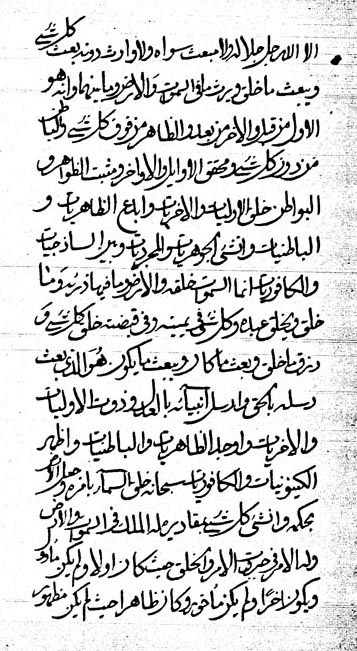 الا الله جل جلاله ولا مبعث سواه ولا وارث دونه يبعث كل شيء
ويبعث ما خلق ويرث ما في السموات والارض وما بينهما وانه هو
الاول من قبل والاخر من بعد والظاهر من فوق كل شيء والباطن
من دون كل شيء ومحقق الاوايل والاواخر ومثبت الظواهر و
البواطن خلق الاوليات والاخريات وابدع الظاهريات و
الباطنيات وانشئ الجوهريات والمجردات وبرا الساذجيات
والكافوريات انما السموات خلقه والارض وما فيها ذرئه وما
خلق ويخلق عباده وكل شيء في يمينه وفي قبضته خلق كل شيء و
رزق ما خلق وبعث ما كان ويبعث ما يكون هو الذي بعث
رسله بالحق وارسل انبيائه بالعدل وذوت الاوليات
والاخريات واوجد الظاهريات والباطنيات واظهر
الكينونيات والكافوريات سبحانه خلق السماء بامره وجعل الارض
بحكمه وانشئ كل شيء بتقاديره له الملك في السموات والارض
وله الامر في جبروت الامر والخلق حيث كان اولا ولم يكن
ويكون اخرا ولم يكن ماخوره وكان ظاهرا حيث لم يكن مظهور